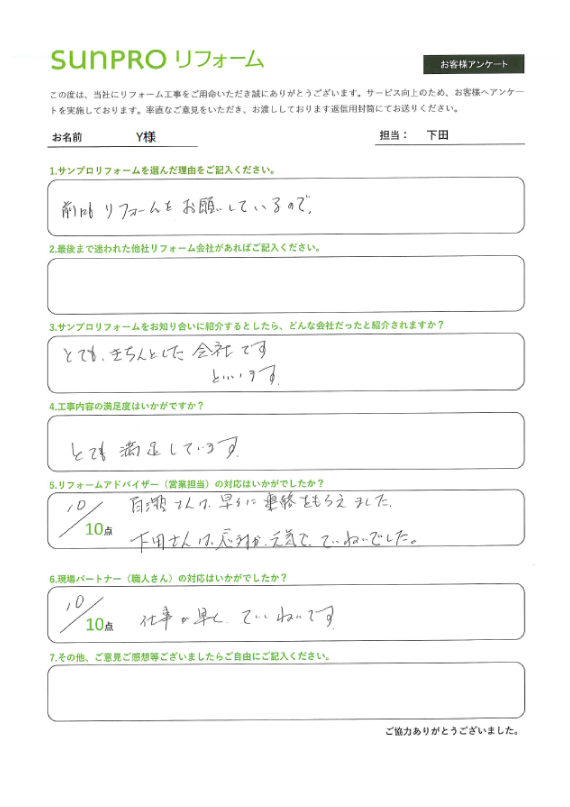 SUNPRO リフォーム
お客様アンケート
この度は、当社にリフォーム工事をご用命いただき誠にありがとうございます。サービス向上のため、お客様へアンケー
トを実施しております。率直なご意見をいただき、お渡ししております返信用封筒にてお送りください。
お名前 Y様
担当： 下田
1.サンプロリフォームを選んだ理由をご記入ください。
前回もリフォームをお願いしているので。
2.最後まで迷われた他社リフォーム会社があればご記入ください。
3.サンプロリフォームをお知り合いに紹介するとしたら、どんな会社だったと紹介されますか？
とても、きちんとした会社です
といいます。
4.工事内容の満足度はいかがですか？
とても満足しています。
5.リフォームアドバイザー（営業担当）の対応はいかがでしたか？
さんは、早々に連絡をもらえました。
10/10点
下田さんは、元気で、ていねいでした。
6.現場パートナー（職人さん）の対応はいかがでしたか？
10/10点 仕事が早く、ていねいです。
7.その他、ご意見ご感想等ございましたらご自由にご記入ください。
ご協力ありがとうございました。